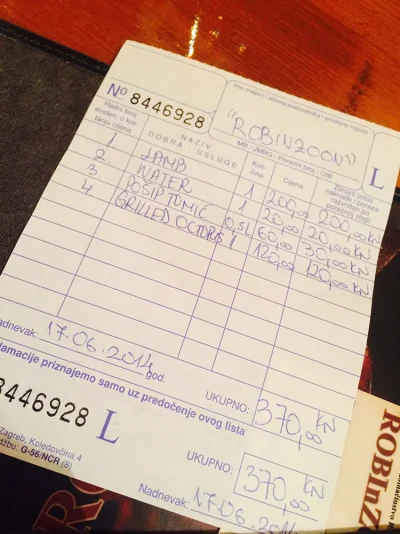 "ROBINZOON"
No 8446928
L
Redni broj
NAZIV
DOBRA - USLUGE
Količina
Cijena
1 LAMB 1 200,00 200,00 KN
2 WATER 1 20,00 20,00 KN
3 POŠIP TOMIĆ 0,5L 60,00 30,00 KN
4 GRILLED OCTOPUS 1 120,00 120,00 KN
Nadnevak: 17.06.2014 god.
UKUPNO: 370,00 KN
lamacije priznajemo samo uz predočenje ovog lista
8446928 L
UKUPNO: 370,00 KN
Zagreb, Koledovčina 4
G-56/NCR (8)
Nadnevak: 17.06.201
ROBInZ